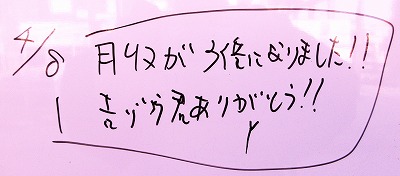 4/8 月収が3倍になりました!!
吉ゾウ君ありがとう!!
Y